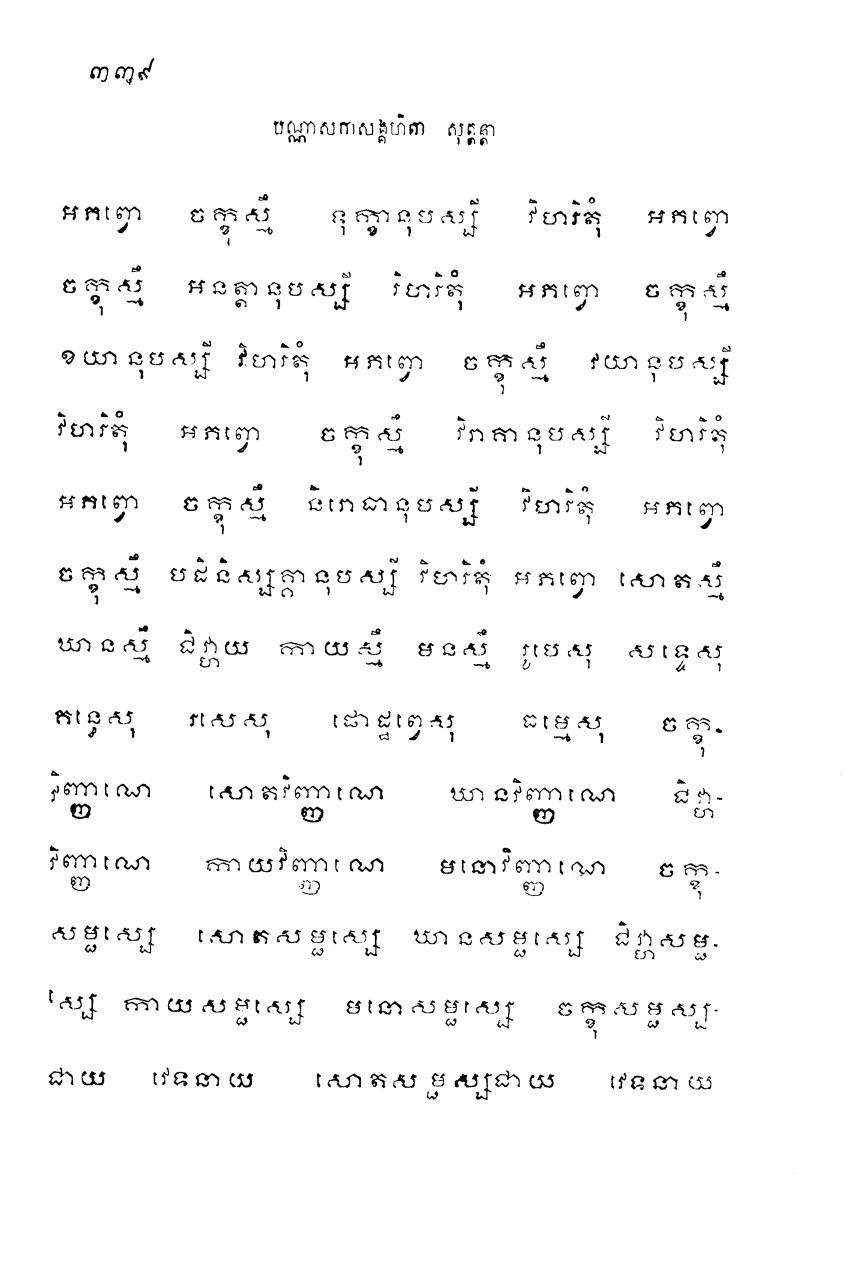 ៣៣៩
បណ្ណាសកាសង្គហិតា សុត្តន្តា
អភព្វោ ចក្ខុស្មឹ ទុក្ខានុបស្សី វិហរិតុំ អភព្វោ
ចក្ខុស្មឹ អនត្តានុបស្សី វិហរិតុំ អភព្វោ ចក្ខុស្មឹ
ខយានុបស្សី វិហរិតុំ អភព្វោ ចក្ខុស្មឹ វយានុបស្សី
វិហរិតុំ អភព្វោ ចក្ខុស្មឹ វិរាគានុបស្សី វិហរិតុំ
អភព្វោ ចក្ខុស្មឹ និរោធានុបស្សី វិហរិតុំ អភព្វោ
ចក្ខុស្មឹ បដិនិស្សគ្គានុបស្សី វិហរិតុំ អភព្វោ សោតស្មឹ
ឃានស្មឹ ជិវ្ហាយ កាយស្មឹ មនស្មឹ រូបេសុ សទ្ទេសុ
គន្ធេសុ រសេសុ ផោដ្ឋព្វេសុ ធម្មេសុ ចក្ខុ-
វិញ្ញាណេ សោតវិញ្ញាណេ ឃានវិញ្ញាណេ ជិវ្ហា-
វិញ្ញាណេ កាយវិញ្ញាណេ មនោវិញ្ញាណេ ចក្ខុ-
សម្ផស្សេ សោតសម្ផស្សេ ឃានសម្ផស្សេ ជិវ្ហាសម្ផ-
ស្សេ កាយសម្ផស្សេ មនោសម្ផស្សេ ចក្ខុសម្ផស្ស-
ជាយ វេទនាយ សោតសម្ផស្សជាយ វេទនាយ